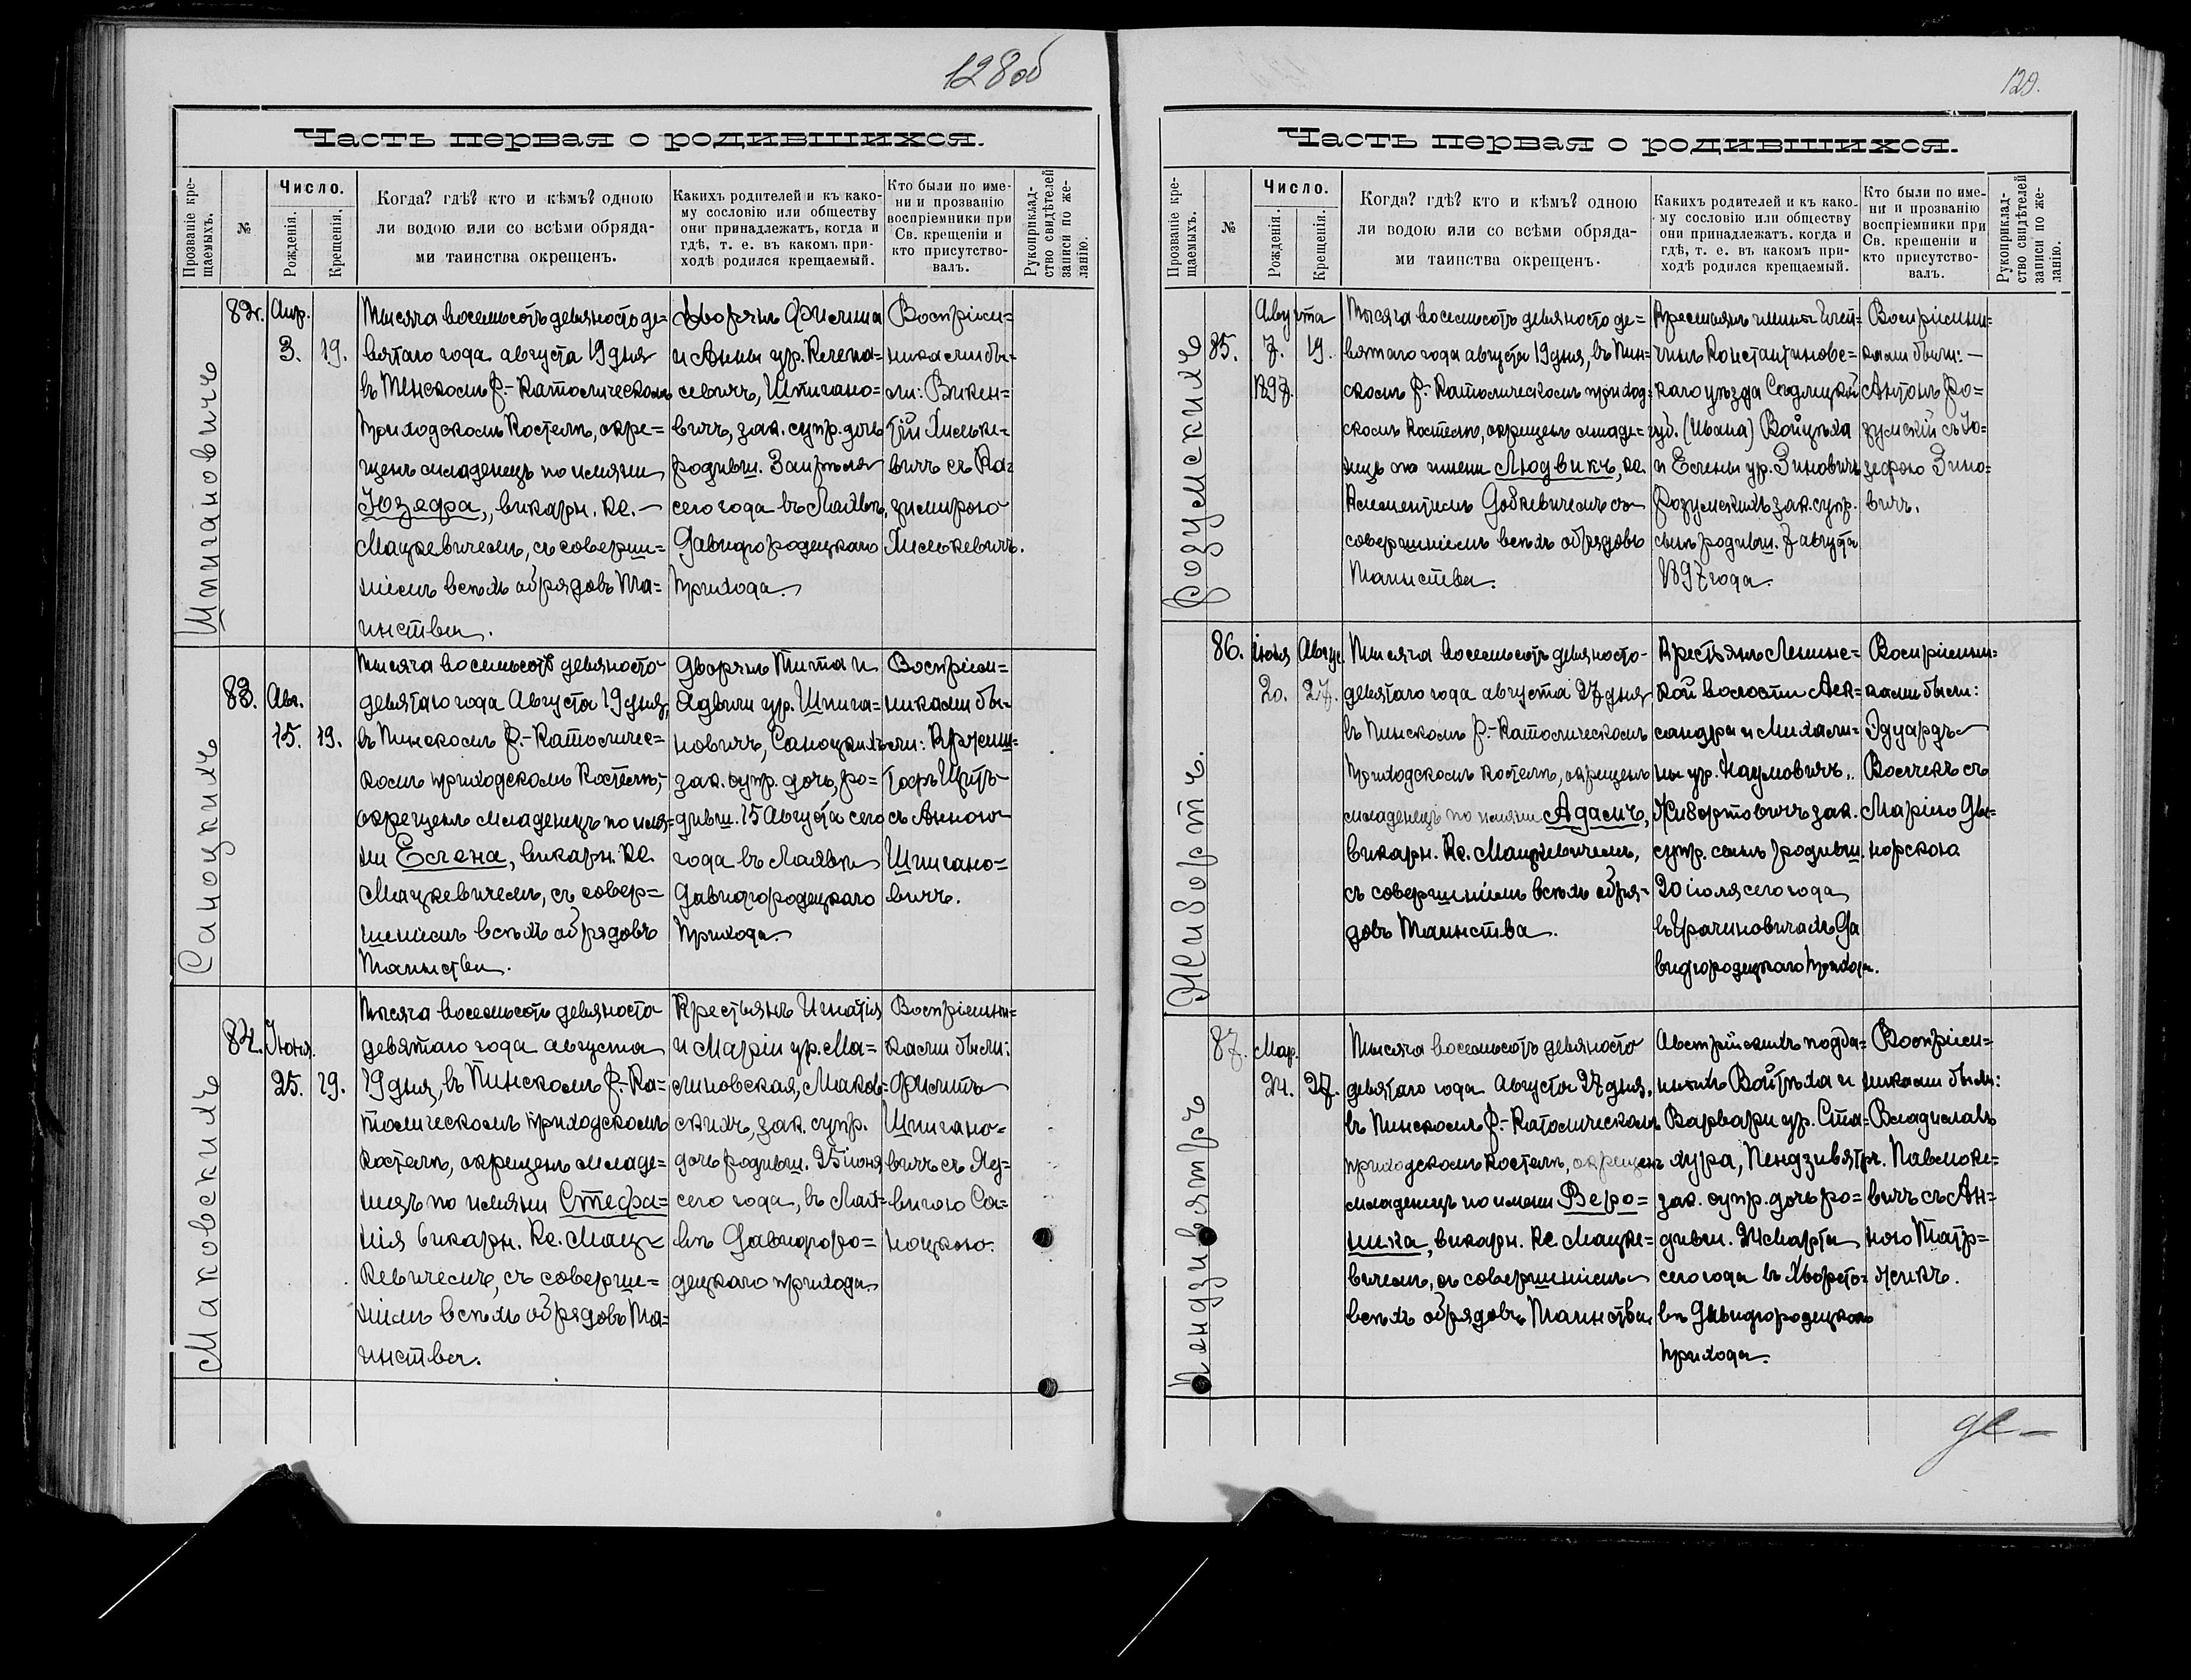 128 об
Часть первая о родившихся.
Прозваніе кре-
щаемыхъ.
№
Число.
Рожденія.
Крещенія.
Когда? гдѣ? кто и кѣмъ? одною
ли водою или со всѣми обряда-
ми таинства окрещенъ.
Какихъ родителей и къ како-
му сословію или обществу
они принадлежатъ, когда и
гдѣ, т. е. въ какомъ при-
ходѣ родился крещаемый.
Кто были по име-
ни и прозванію
воспріемники при
Св. крещеніи и
кто присутство-
валъ.
Рукоприклад-
ство свидѣтелей
записи по же-
ланію.
Шпигановичъ
82.
Апр.
3.
19.
Тысяча восемьсотъ девяносто де=
вятаго года августа 19 дня
въ Пинскомъ Р.-Католическомъ
приходскомъ Костелѣ, окре=
щенъ младенецъ по имяни
Юзефа, викарн. Кс.
Мацкевичемъ, съ соверш=
ніемъ всѣхъ обрядовъ Та=
инства.
Дворянъ Филипа
и Анны ур.
севичъ, Шпигано=
вичъ, зак. супр. дочь
родивш. 3 апрѣля
сего года въ
Давидгородецкаго
прихода.
Воспріем=
никами бы=
ли: Викен=
тій Хмѣле=
вичъ съ Ка=
зимирою
Саноцкихъ
83.
Авг.
15.
19.
Тысяча восемьсотъ девяносто
девятаго года Августа 19 дня,
въ Пинскомъ Р.-Католичес=
комъ приходскомъ Костелѣ,
окрещенъ младенецъ по имя=
ни Елена, викарн. Кс.
Мацкевичемъ, съ совер=
шеніемъ всѣхъ обрядовъ
Таинства.
Дворянъ Тита и
Ядвиги ур. Шпига=
новичъ, Саноцкихъ
зак. супр. дочь, ро=
дивш. 15 Августа сего
года въ
Давидгородецкаго
прихода.
Воспріем=
никами бы=
ли:
съ Анною
Шпигано=
вичъ.
Маковскихъ
84.
Іюня.
25.
19.
Тысяча восемьсотъ девяносто
девятаго года августа
19 дня, въ Пинскомъ Р.-Ка=
толическомъ приходскомъ
костелѣ, окрещенъ младе=
нецъ по имяни Стефа=
нія викарн. Кс. Мац=
кевичемъ, съ соверше=
ніемъ всѣхъ обрядовъ Та=
инства.
Крестьянъ Игнатія
и Маріи ур. Ма=
линовская, Маков=
скихъ, зак. супр.
дочь родивш. 25 іюня
сего года, въ Мал=
вѣ Давидгоро=
децкаго прихода.
Воспріемни=
ками были:
Филипъ
Шпигано=
вичъ съ Яд=
вигою Са=
ноцкою.
129.
Часть первая о родившихся.
Прозваніе кре-
щаемыхъ.
№
Число.
Рожденія.
Крещенія.
Когда? гдѣ? кто и кѣмъ? одною
ли водою или со всѣми обряда-
ми таинства окрещенъ.
Какихъ родителей и къ како-
му сословію или обществу
они принадлежатъ. когда и
гдѣ, т. е. въ какомъ при-
ходѣ родился крещаемый.
Кто были по име-
ни и прозванію
воспріемники при
Св. крещеніи и
кто присутство-
валъ.
Рукоприклад-
ство свидѣтелей
записи по же-
ланію.
Розумскихъ
85.
Августа
7.
1897.
19.
Тысяча восемьсотъ девяносто де=
вятаго года августа 19 дня, въ Пин=
скомъ Р.-Католическомъ приход=
скомъ Костелѣ, окрещенъ младе=
нецъ по имени Людвикъ, Кс.
Климентіемъ съ
совершніемъ всѣхъ обрядовъ
Таинства.
Крестьянъ гмины
Константиновс=
каго уѣзда Сѣдлецкой
губ. (Ивана) Войцѣха
и Елены ур. Зиновичъ
Розумскихъ зак. супр.
сынъ родивш. 7 августа
1897 года.
Воспріемни=
ками были:
Антонъ Ро=
зумскій съ Ю=
зефою Зино=
вичъ.
Живортъ.
86.
Іюля
20.
Август.
27.
Тысяча восемьсотъ девяносто-
девятаго года августа 27 дня
въ Пинскомъ Р.-Католическомъ
приходскомъ костелѣ, окрещенъ
младенецъ по имяни Адамъ,
викарн. Кс. Мацкевичемъ,
съ совершніемъ всѣхъ обря=
довъ Таинства.
Крестьянъ Ленинс=
кой волости Алек=
сандра и Михали=
ны ур. Наумовичъ,
зак.
супр. сынъ родивш.
20 іюля сего года
въ Грачиновичахъ Да
видгородецкаго прихода.
Воспріемни=
ками были:
Эдуардъ
Волчекъ съ
Маріею Дво=
норскою
Пендзивятръ
87.
Мар.
24.
27.
Тысяча восемьсотъ девяносто
девятаго года Августа 27 дня,
въ Пинскомъ Р.-Католическомъ
приходскомъ костелѣ, окрещенъ
младенецъ по имени Веро=
ника, викарн. Кс Мацке=
вичемъ, съ совершніемъ
всѣхъ обрядовъ Таинства
Австрійскихъ подда=
ныхъ Войтѣха и
Варвары ур. Ста=
хура, Пендзивятръ.
зак. супр. дочь ро=
дивш. 24 Марта
сего года въ Хворсто=
вѣ Давидгородецкаго
прихода.
Воспріем=
никами были:
Владиславъ
Павлюке=
вичъ съ Ан=
ною Патр=